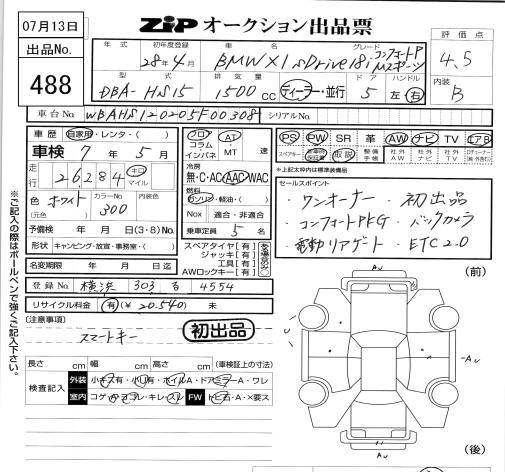 07月13日
ZIP オークション出品票
出品No.
488
年式
初年度登録
28年4月
車名
BMW X1 sDrive18i
グレード
コンフォートP
Mスポーツ
評価点
4.5
内装
B
型式
DBA-HS15
排気量
1500 cc
ディーラー・並行
ドア
5
ハンドル
左 右
車台No.
WBAHS120205F00308
シリアルNo.
車歴 自家用・レンタ・( )
車検 7年 5月
走行 26,284 キロ マイル
色 ホワイト
(元色)
カラーNo.
300
内装色
予備検 年 月 日(3・8)No.
形状 キャンピング・放宣・事務室・( )
名変期限 年 月 日迄
フロア
コラム
インパネ
AT
MT 速
冷房
無・C・AC AAC WAC
燃料
ガソリン・軽油・( )
Nox 適合・非適合
乗車定員 5 名
スペアタイヤ[有]
ジャッキ[有]
工具[有]
AWロックキー[有]
PS PW SR 革 AW ナビ TV エアB
スペアキー
取説
整備手帳
社外AW
社外ナビ
社外TV
※上記太枠内は標準装備品
セールスポイント
・ワンオーナー ・初出品
・コンフォートPKG ・バックカメラ
・電動リアゲート ・ETC2.0
登録No. 横浜 303 る 4554
リサイクル料金 有(¥ 20,540) 未
[注意事項]
スマートキー
初出品
※ご記入の際はボールペンで強くご記入下さい。
長さ cm 幅 cm 高さ cm (車検証上の寸法)
検査記入
外装 小キズ有・小凹有・ホイルA・ドアミラーA・ワレ
室内 コゲA・ヨゴレ・キレ・スレ FW トビ石・A・×要ス
(前)
A∪
-A∪
A∪
(後)